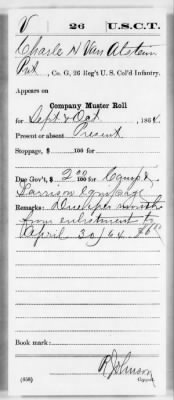 V 26 U.S.C.T.
Charle N Van Alstein
Pvt, Co. G, 26 Reg't U. S. Col'd Infantry.
Appears on
Company Muster Roll
for Sept & Oct, 1864.
Present or absent Present
Stoppage, $ 100 for
Due Gov't, $ 2 00 100 for Camp &
Garrison Equipage
Remarks: Due per month
from enlistment to
April 30/64
Book mark:
R Johnson
(858) Copyist.